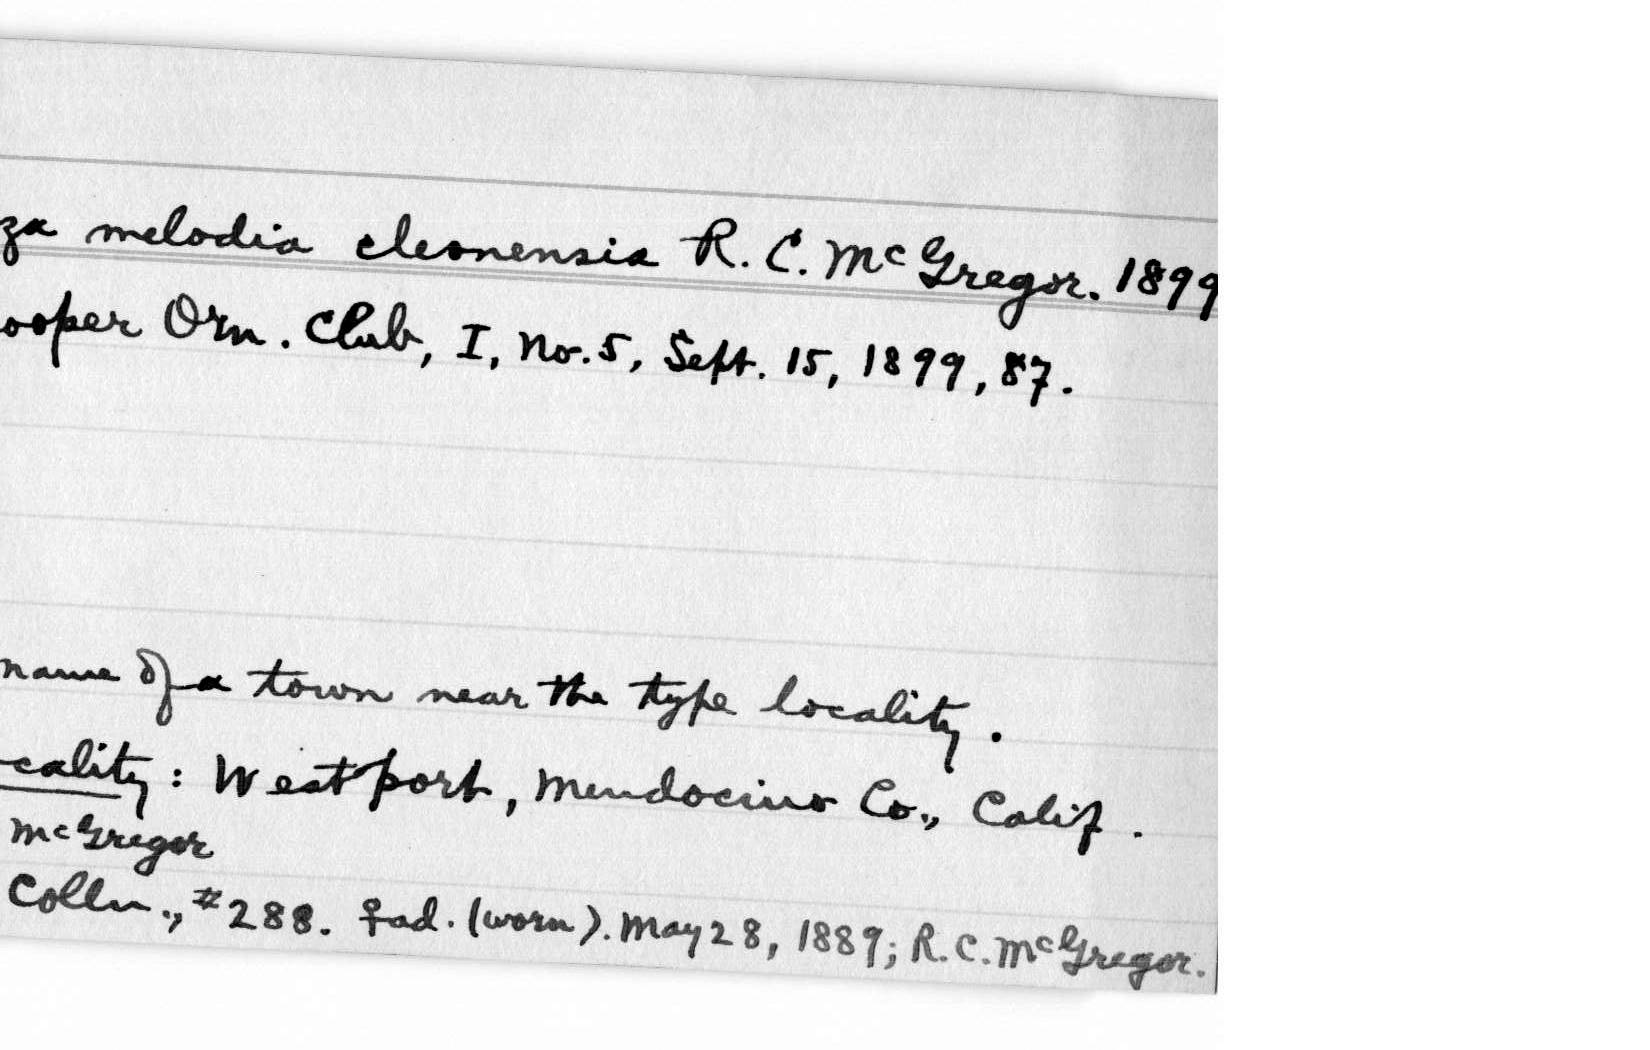 za melodia cleonensis R. C. McGregor. 1899
ooper Orn. Club, I, No. 5, Sept. 15, 1899, 87.
name of a town near the type locality.
cality: Westport, Mendocino Co., Calif.
McGregor
Colln., #288. ♀ ad. (worn). May 28, 1889; R. C. McGregor.